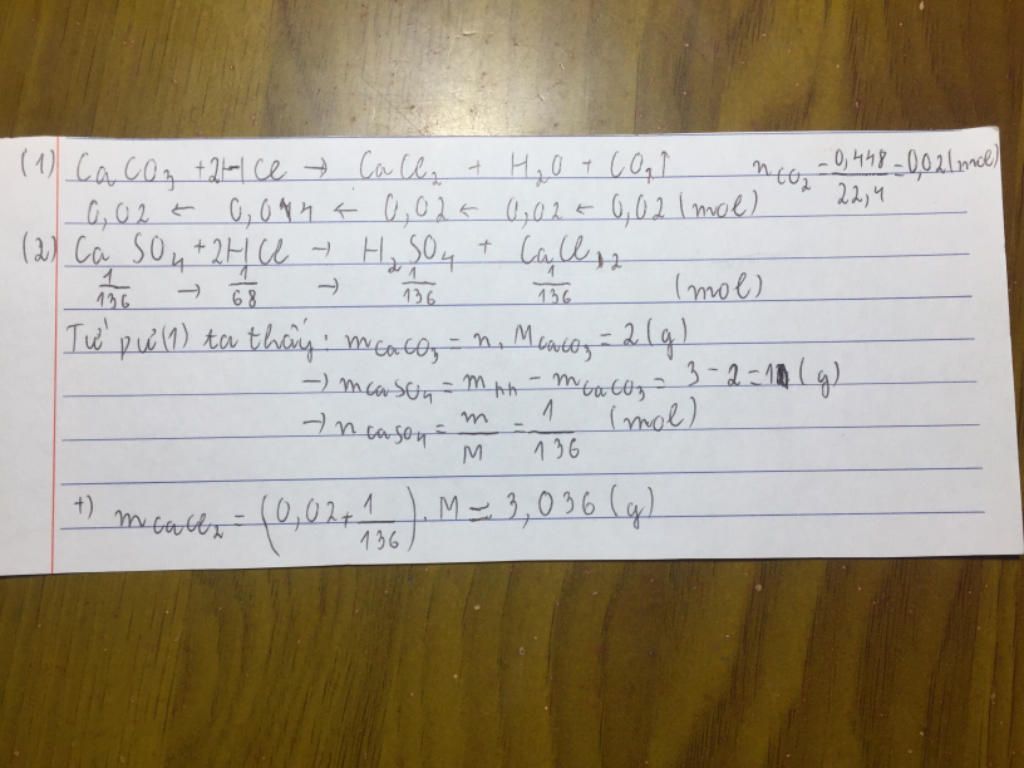 (1) CaCO₃ + 2HCl → CaCl₂ + H₂O + CO₂↑ n_CO₂ = 0,448/22,4 = 0,02 (mol)
0,02 ← 0,04 ← 0,02 ← 0,02 ← 0,02 (mol)
(2) CaSO₄ + 2HCl → H₂SO₄ + CaCl₂
1/136 → 1/68 → 1/136 1/136 (mol)
Từ pư (1) ta thấy: m_CaCO₃ = n. M_CaCO₃ = 2 (g)
→ m_CaSO₄ = m_hh - m_CaCO₃ = 3 - 2 = 1 (g)
→ n_CaSO₄ = m/M = 1/136 (mol)
+) m_CaCl₂ = (0,02 + 1/136). M ≈ 3,036 (g)